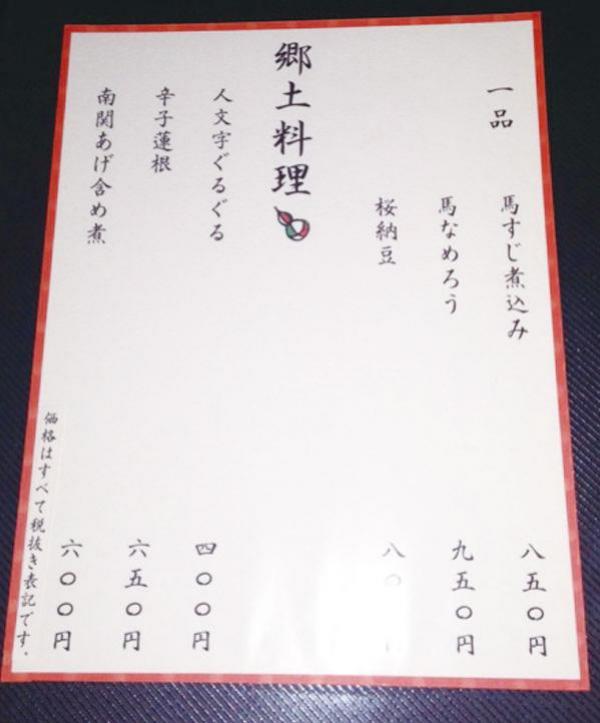 一品
馬すじ煮込み 八五〇円
馬なめろう 九五〇円
桜納豆 八〇
郷土料理
人文字ぐるぐる 四〇〇円
辛子蓮根 六五〇円
南関あげ含め煮 六〇〇円
価格はすべて税抜き表記です。